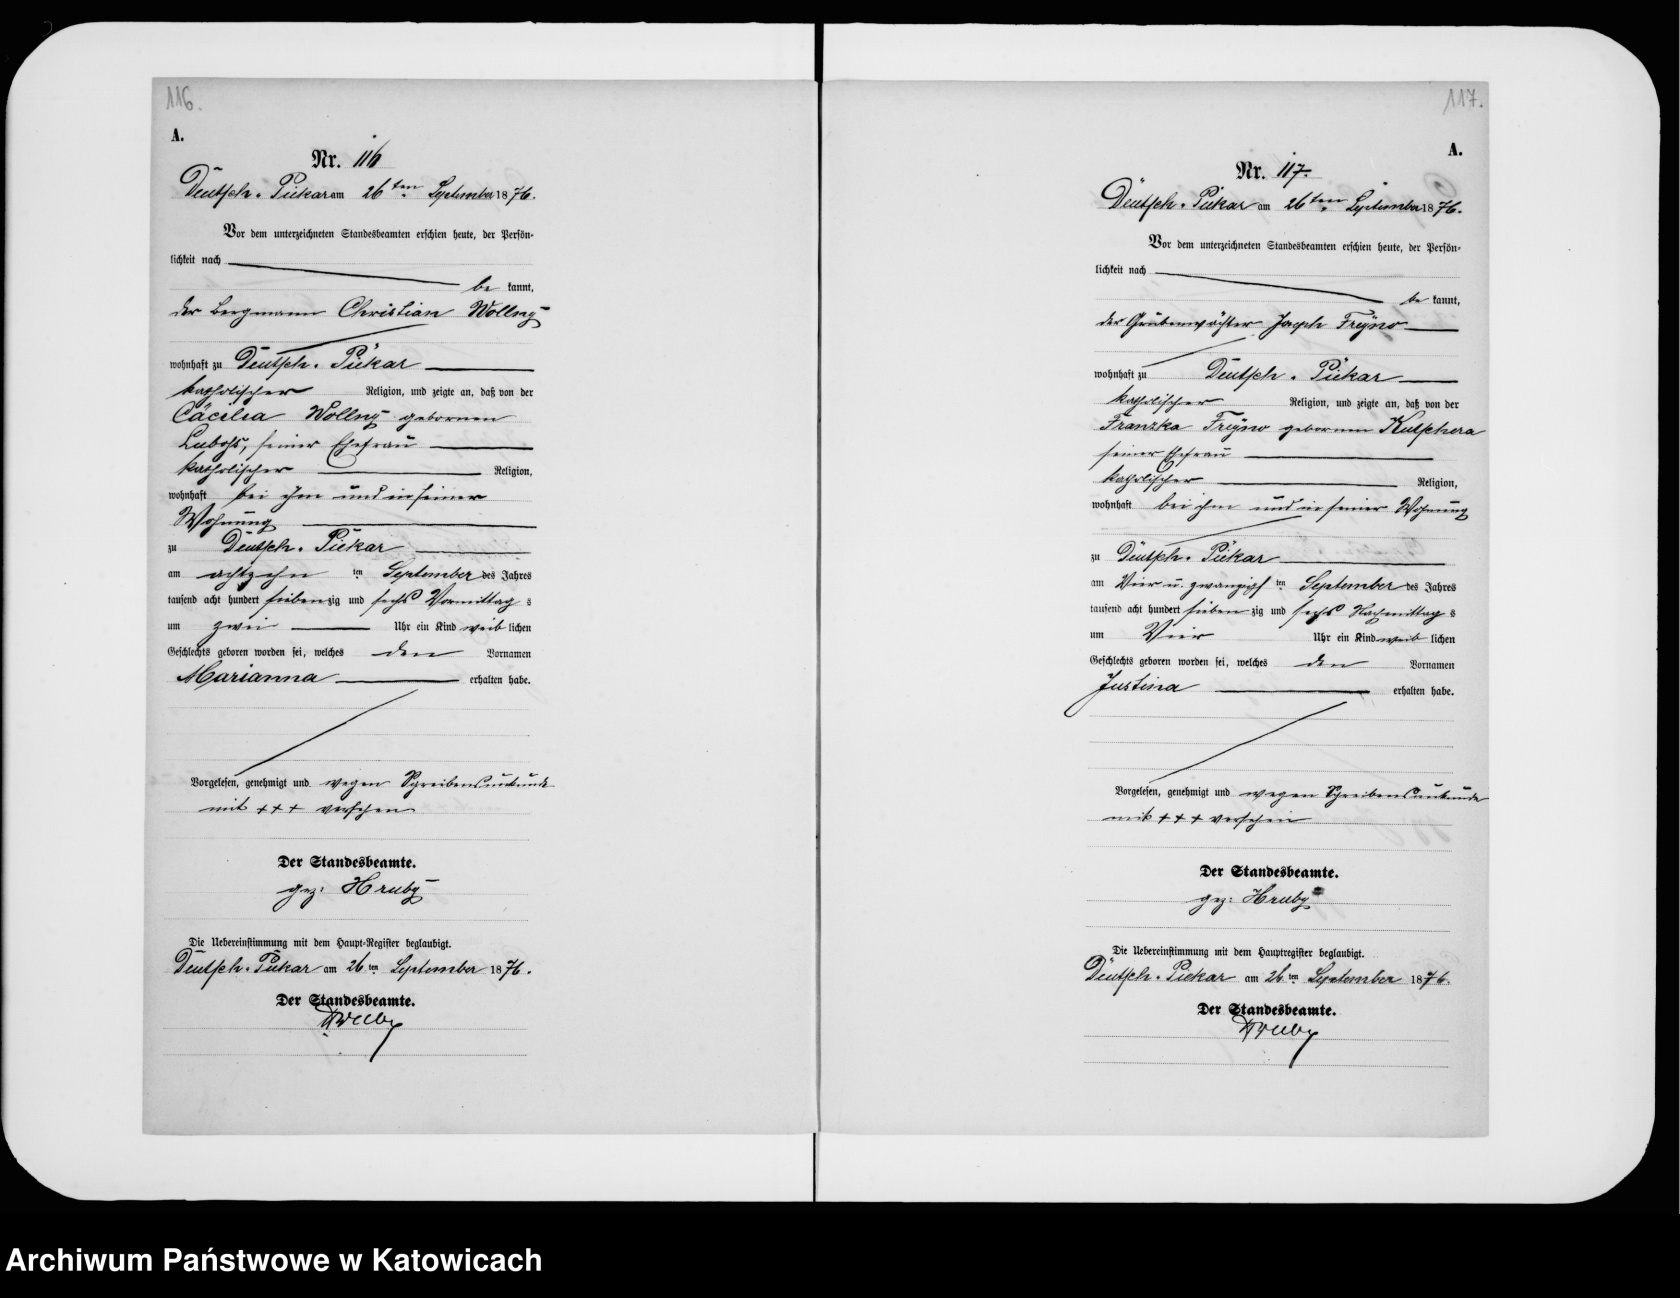 116.
A.
Nr. 116
Deutsch-Piekar am 26ten September 1876.
Vor dem unterzeichneten Standesbeamten erschien heute, der Persön-
lichkeit nach
be kannt,
der Bergmann Christian Wollny
wohnhaft zu Deutsch-Piekar
katholischer Religion, und zeigte an, daß von der
Cäcilia Wollny gebornen
seiner Ehefrau
katholischer Religion,
wohnhaft bei ihm und in seiner
Wohnung
zu Deutsch-Piekar
am achtzehn ten September des Jahres
tausend acht hundert siebenzig und sechs Vormittag s
um zwei Uhr ein Kind weiblichen
Geschlechts geboren worden sei, welches den Vornamen
Marianna erhalten habe.
Vorgelesen, genehmigt und wegen Schreibensunkunde
mit +++ versehen
Der Standesbeamte.
gez: Hruby
Die Uebereinstimmung mit dem Haupt-Register beglaubigt.
Deutsch-Piekar am 26ten September 1876.
Der Standesbeamte.
Hruby
117.
A.
Nr. 117.
Deutsch-Piekar am 26ten September 1876.
Vor dem unterzeichneten Standesbeamten erschien heute, der Persön-
lichkeit nach
be kannt,
der Grubenwächter Joseph Fryno
wohnhaft zu Deutsch-Piekar
katholischer Religion, und zeigte an, daß von der
Franzka Fryno gebornen Kutschera
seiner Ehefrau
katholischer Religion,
wohnhaft bei ihm und in seiner Wohnung
zu Deutsch-Piekar
am Vier u. zwanzigs ten September des Jahres
tausend acht hundert siebenzig und sechs Nachmittag s
um Vier Uhr ein Kind weiblichen
Geschlechts geboren worden sei, welches den Vornamen
Justina erhalten habe.
Vorgelesen, genehmigt und wegen Schreibensunkunde
mit +++ versehen
Der Standesbeamte.
gez: Hruby
Die Uebereinstimmung mit dem Hauptregister beglaubigt.
Deutsch-Piekar am 26ten September 1876.
Der Standesbeamte.
Hruby
Archiwum Państwowe w Katowicach